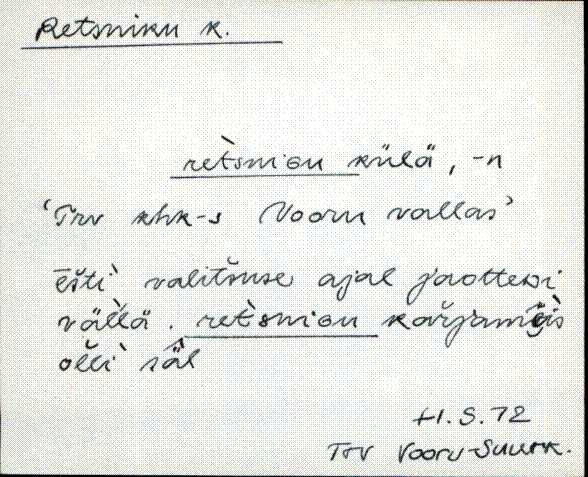 Retsniku k.
rèt̀snिɢu külä, -n
‘Trv khk-s Vooru vallas’
ēštì̬ valitšuse ajal jaottevi
väl̀lä. rèt̀sniɢu kařjamȩ̄̀is
ollì̬ säl
H.S. 72
Trv Vooru-Suurk.